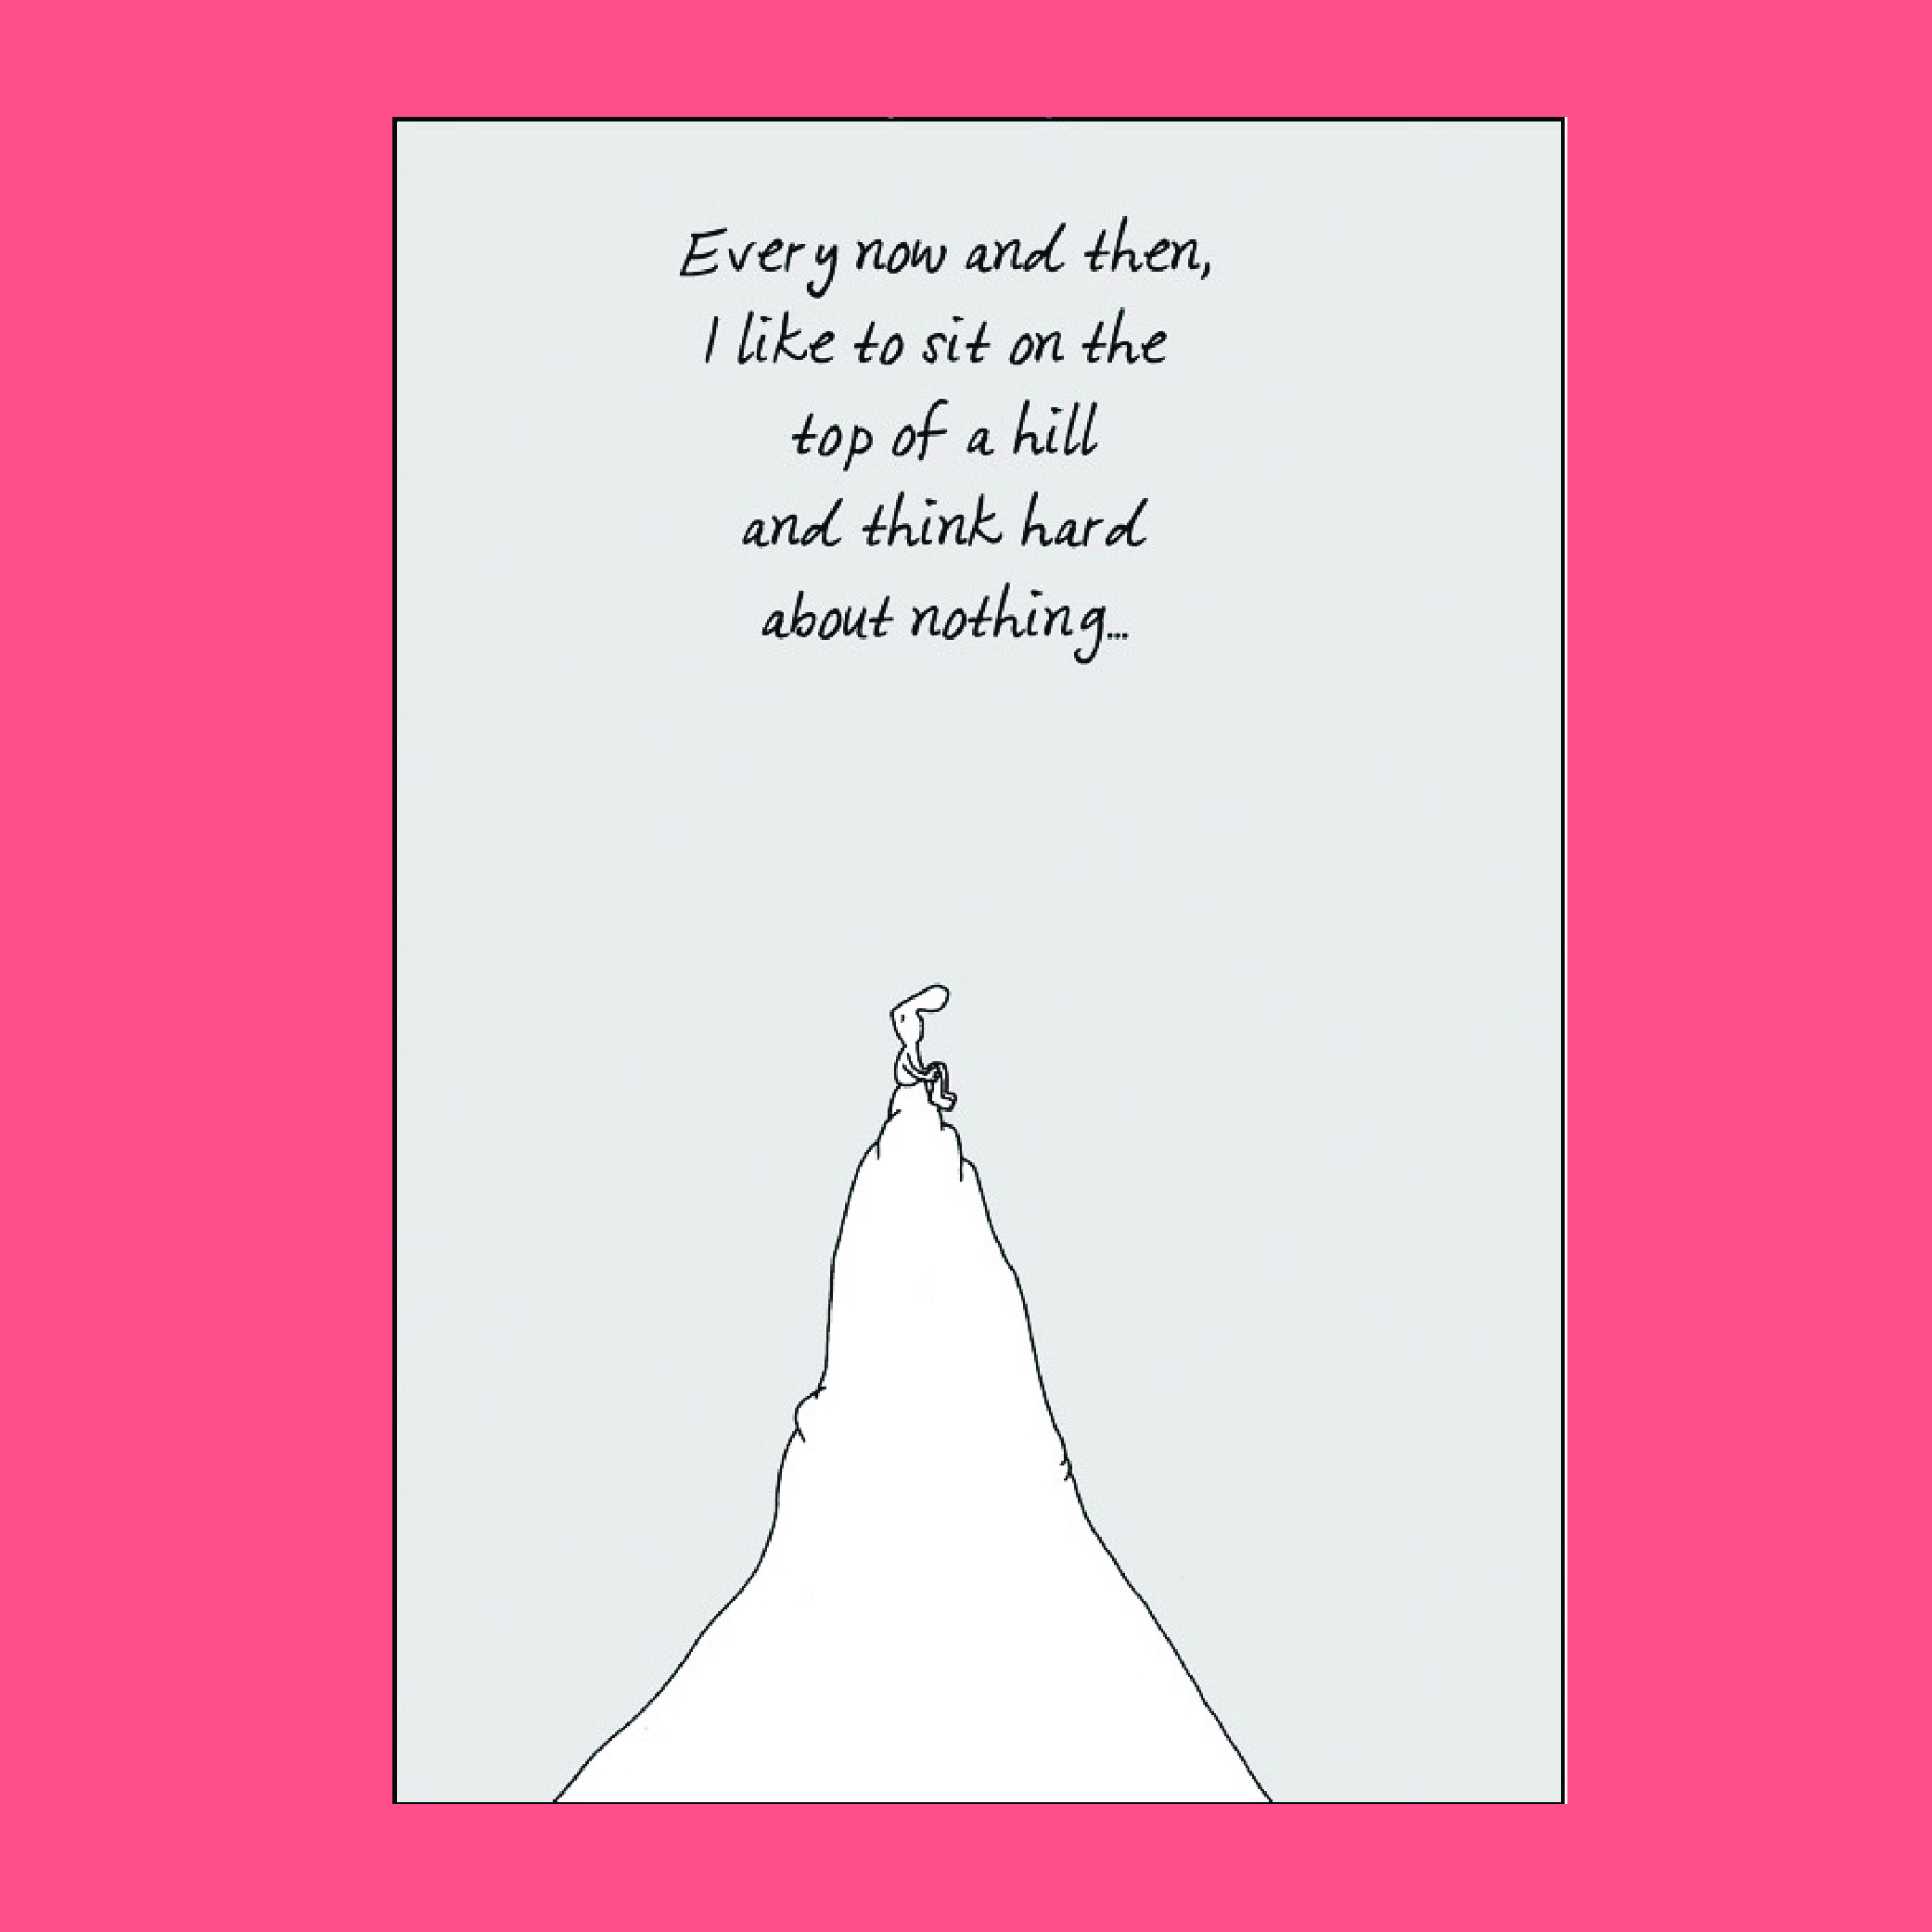 Every now and then,
I like to sit on the
top of a hill
and think hard
about nothing...